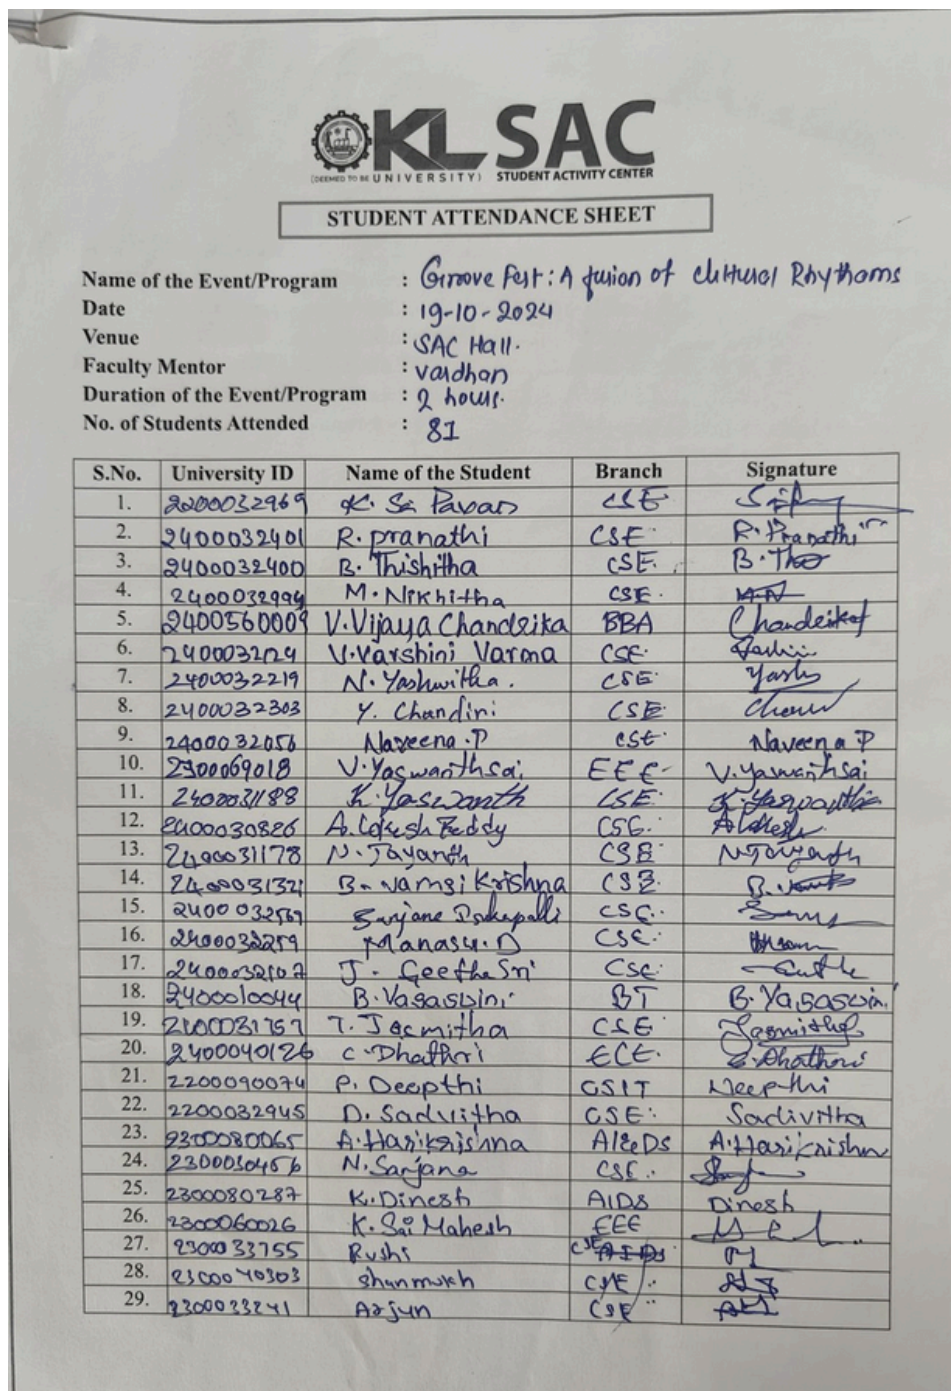 KL SAC
(DEEMED TO BE UNIVERSITY) STUDENT ACTIVITY CENTER
STUDENT ATTENDANCE SHEET
Name of the Event/Program : Groove Fest: A fusion of Cultural Rhythams
Date : 19-10-2024
Venue : SAC Hall.
Faculty Mentor : Vardhan
Duration of the Event/Program : 2 hours.
No. of Students Attended : 81
S.No. University ID Name of the Student Branch Signature
1. 2200032969 K. Sai Pavan CSE
2. 2400032401 R. pranathi CSE R. Pranathi
3. 2400032400 B. Thishitha CSE. B.
4. 2400032994 M. Nikhitha CSE.
5. 2400560009 V. Vijaya Chandrika BBA Chandrika
6. V. Varshini Varma CSE.
7. 2400032219 N. Yashwitha. CSE. Yash
8. 2400032303 Y. Chandini CSE
9. 2400032056 Naveena .P CSE. Naveena P
10. 2300069018 V. Yaswanthsai EEE V. Yaswanthsai
11. 2400031188 K. Yaswanth CSE. K. Yaswanth
12. 2400030826 A. Lokesh Reddy CSE. A Lokesh
13. 2400031178 N. Jayanth CSE N Jayanth
14. 2400031321 B. Vamsi Krishna CSE B.
15. 2400032569 Sanjana CSE.
16. 2400032259 Manasa. D CSE.
17. 2400032107 J. Geetha Sri CSE
18. 2400010044 B. Yasaswini BT B. Yasaswini
19. 2400031757 T. Jasmitha CSE Jasmitha
20. 2400040126 C. Dhathri ECE. C. Dhathri
21. 2200090074 P. Deepthi CSIT Deepthi
22. 2200032945 D. Sadvitha CSE. Sadivitha
23. 2300080065 A. Harikrishna AI&DS A. Harikrishna
24. 2300030456 N. Sanjana CSE.
25. 2300080287 K. Dinesh AIDS Dinesh
26. 2300060026 K. Sai Mahesh EEE
27. 2300033755 Rushi CSE
28. 2300040303 Shanmukh CSE
29. 2300033241 Arjun CSE